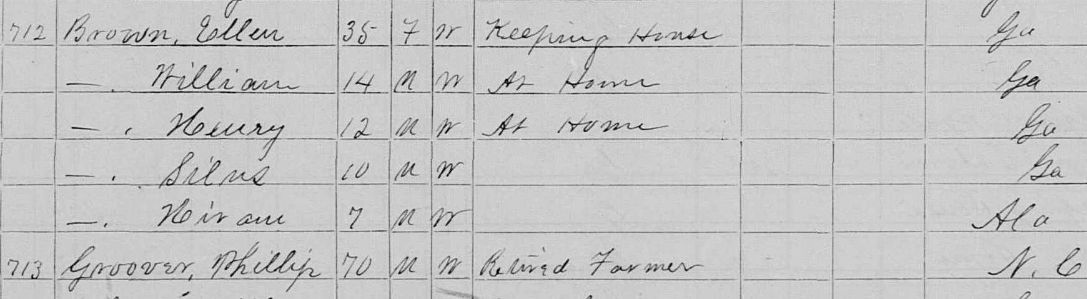 712 Brown, Ellen 35 F W Keeping House Ga
—. William 14 M W At Home Ga
—. Henry 12 M W At Home Ga
—. Silas 10 M W Ga
—. Hiram 7 M W Ala
713 Groover, Phillip 70 M W Retired Farmer N. C